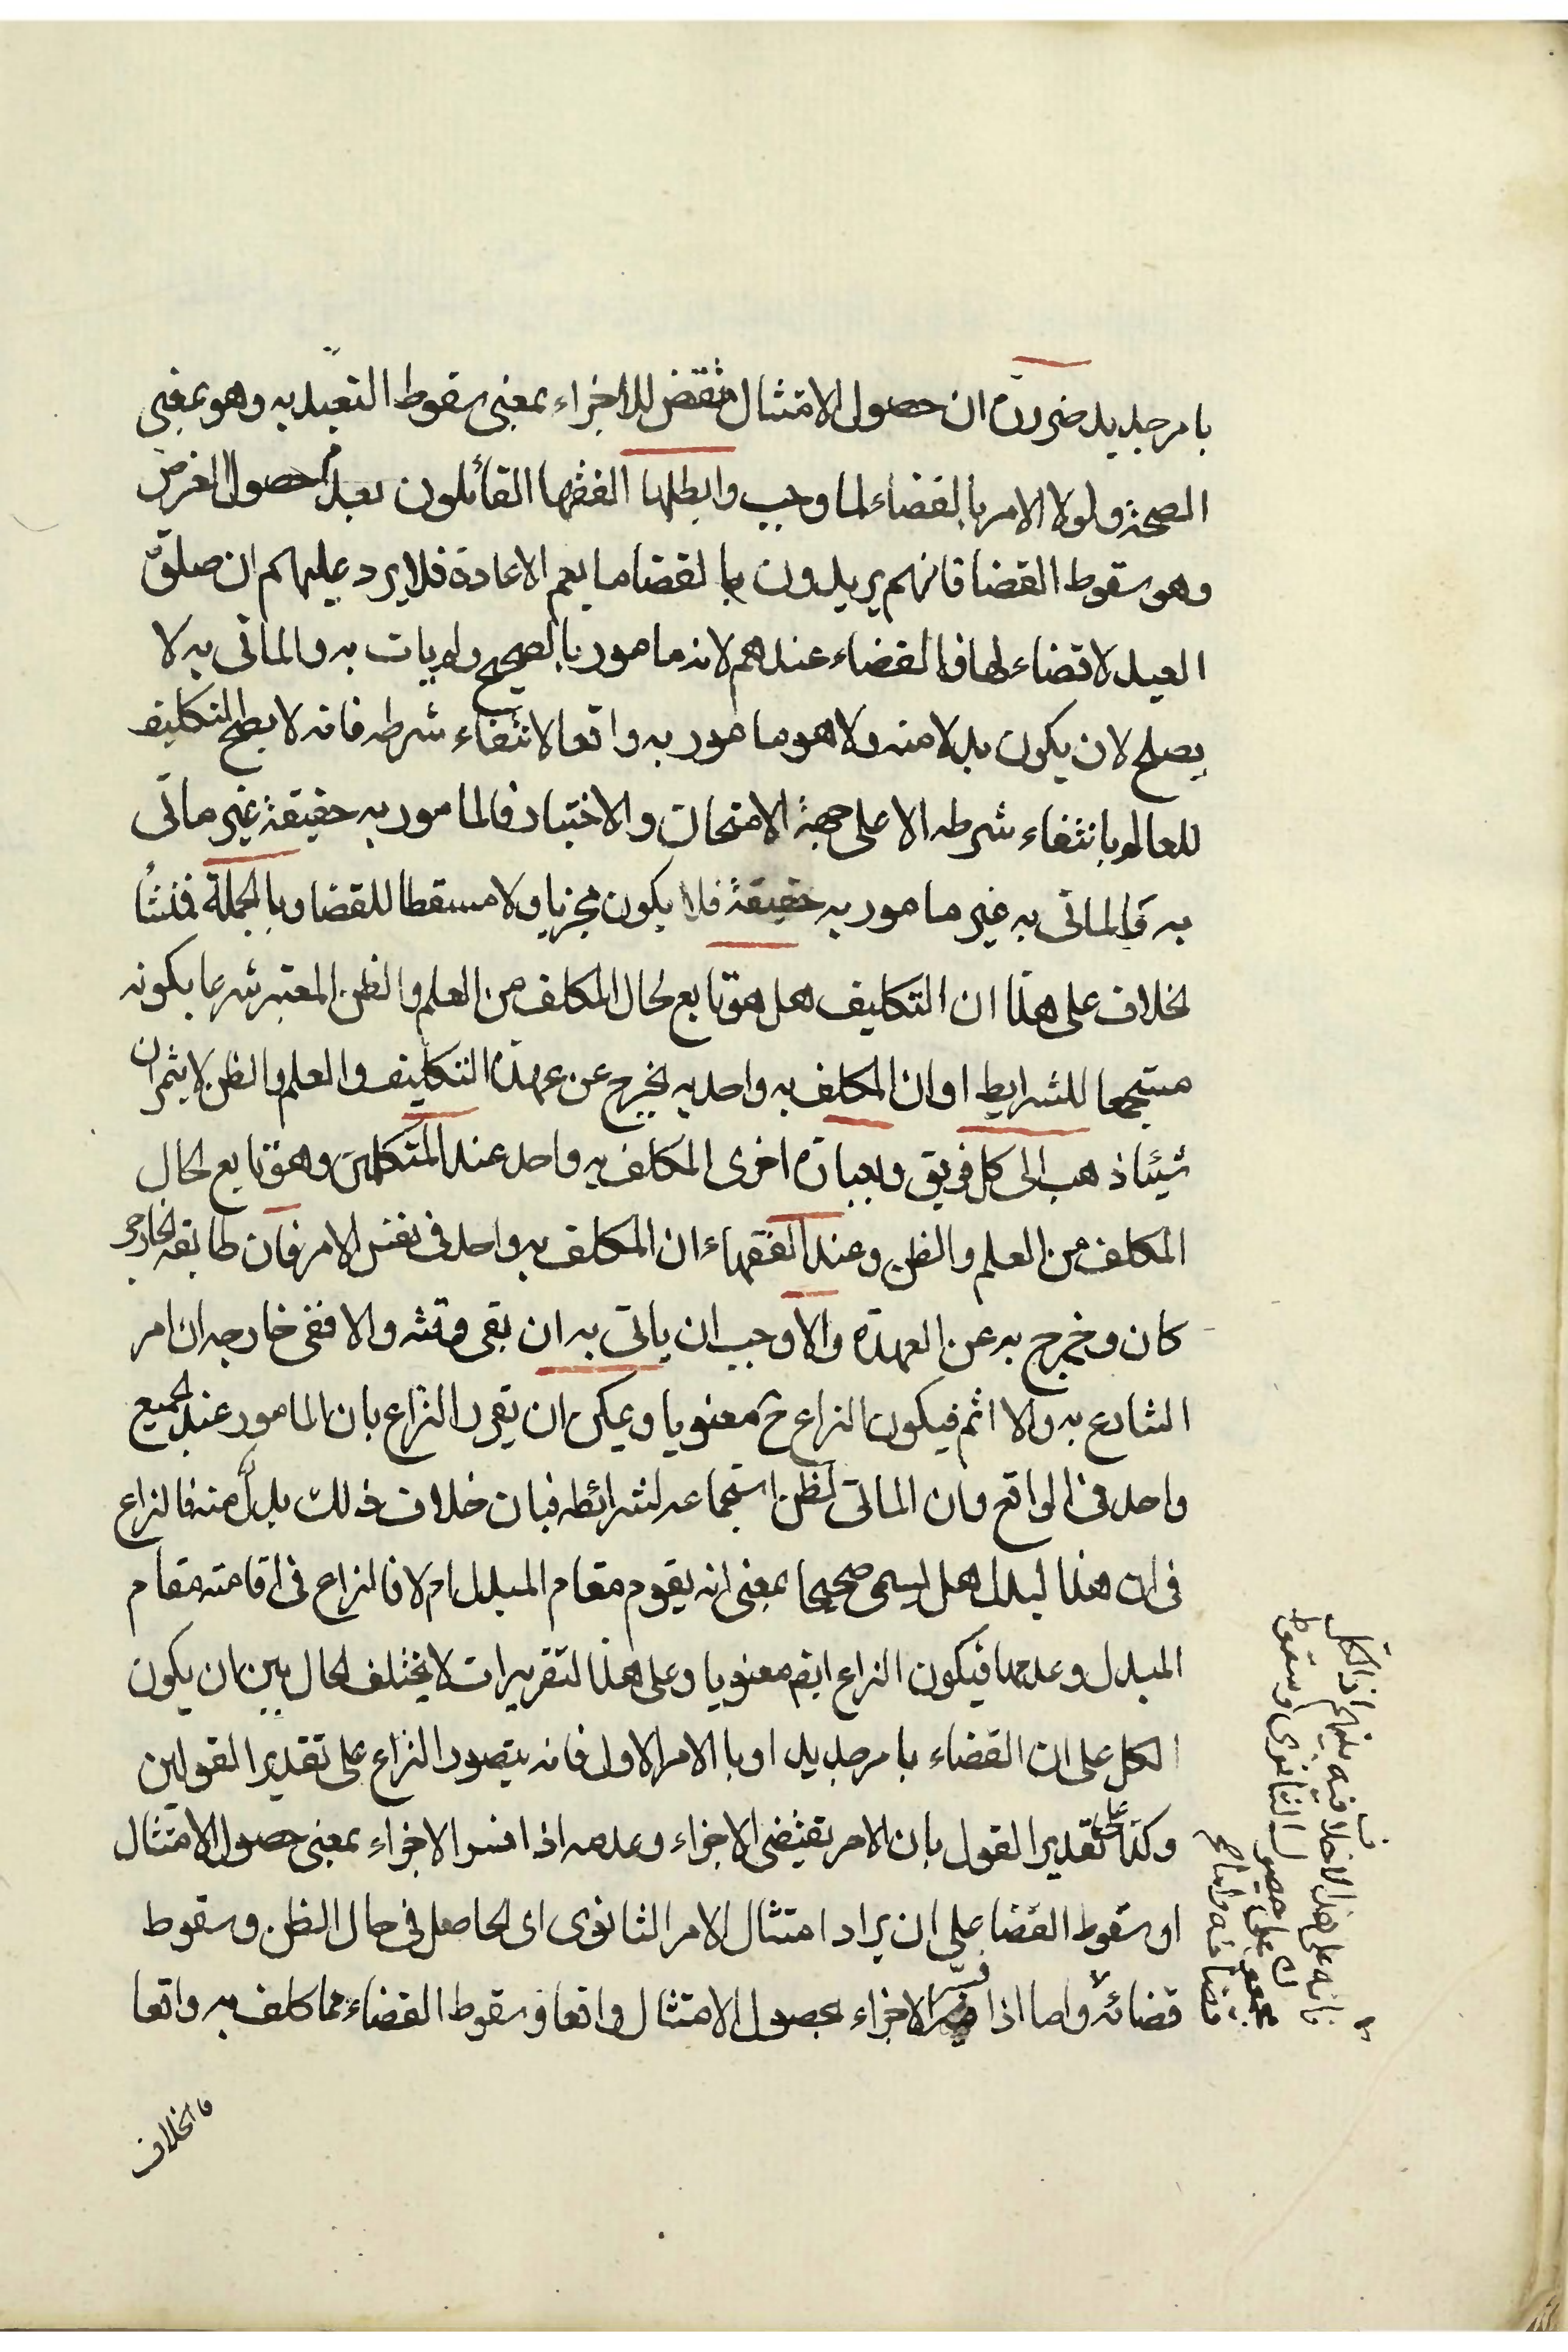 بامر جديد ضرورة ان حصول الامتثال مقتض للاجزاء بمعنى سقوط التعبد به وهو بمعنى
الصحة ولولا الامر بالقضاء لما وجب وابطلها الفقها القائلون بعدم حصول الغرض
وهو سقوط القضا فانهم يريدون بالقضا ما يعم الاعادة فلا يرد عليهم ان صلوة
العيد لا قضاء لها فالقضاء عندهم لانه مامور بالصحيح ولم يات به والماتى به لا
يصلح لان يكون بدلا منه ولا هو مامور به واقعا لانتفاء شرطه فانه لا يصح التكليف
للعالم بانتفاء شرطه الا على جهة الامتحان والاختبار فالمامور به حقيقة غير ماتى
به والماتى به غير مامور به حقيقة فلا يكون مجزيا ولا مسقطا للقضا وبالجملة فمنشأ
الخلاف على هذا ان التكليف هل هو تابع لحال المكلف من العلم والظن المعتبر شرعا بكونه
مستجمعا للشرايط او ان المكلف به واحد به يخرج عن عهدة التكليف والعلم والظن لا يثمران
شيئا ذهب الى كل فريق وبعبارة اخرى المكلف به واحد عند المتكلمين وهو تابع لحال
المكلف من العلم والظن وعند الفقهاء ان المكلف به واحد فى نفس الامر فان طابقه الخارجى
كان وخرج به عن العهدة والا وجب ان ياتى به ان بقى وقته والا ففى خارجه ان امر
الشارع به والا اثم فيكون النزاع ح معنويا ويمكن ان يقرر النزاع بان المامور عند الجميع
واحد فى الواقع وان الماتى لظن استجماعه لشرائطه فبان خلاف ذلك بدل منه فالنزاع
فى ان هذا لبدل هل يسمى صحيحا بمعنى انه يقوم مقام المبدل ام لا فالنزاع فى اقامته مقام
المبدل وعدمها فيكون النزاع ايضا معنويا وعلى هذا لتقريرات لا يختلف لحال بين ان يكون
الكل على ان القضاء بامر جديد او بالامر الاول فانه يتصور النزاع على تقدير القولين
وكذا على تقدير القول بان الامر يقتضى الاجزاء وعدمه اذا فسر الاجزاء بمعنى حصول الامتثال
او سقوط القضا على ان يراد امتثال الامر الثانوى اى الحاصل فى حال الظن وسقوط
قضائه واما اذا فسر الاجزاء بحصول الامتثال واقعا وسقوط القضاء مما كلف به واقعا
فالخلاف